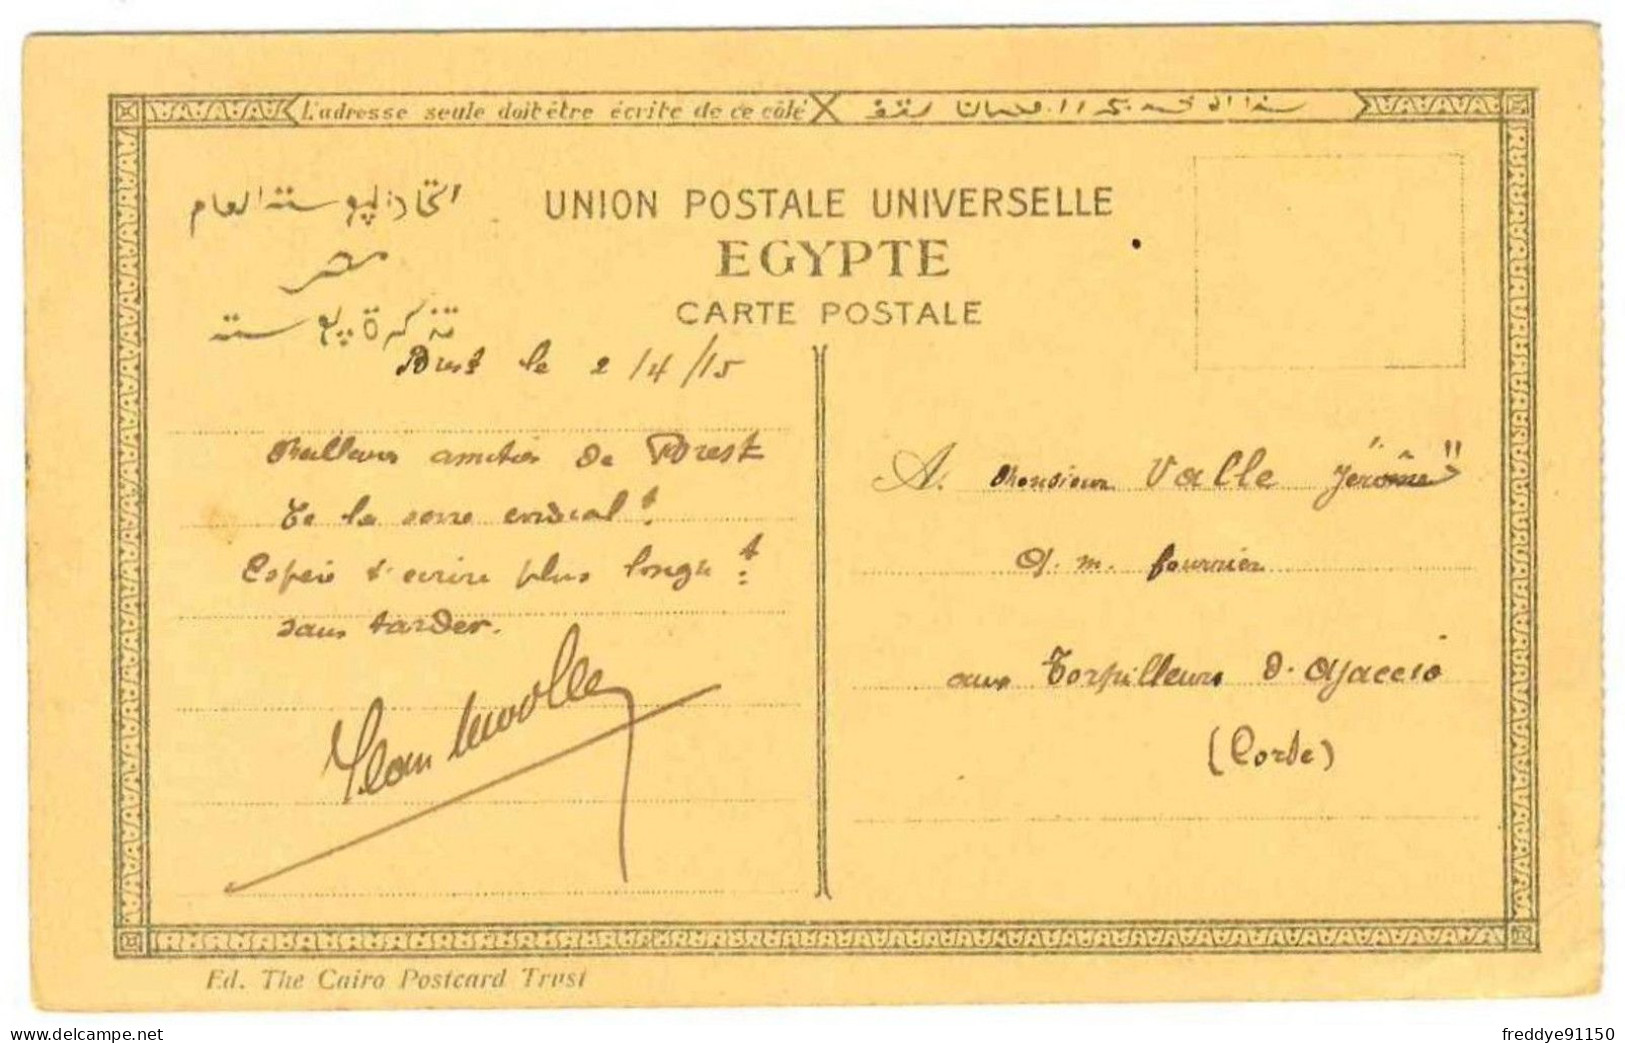 L'adresse seule doit être écrite de ce côté
اتحاد البوستة العام
UNION POSTALE UNIVERSELLE
مصر
EGYPTE
تذكرة بوستة
CARTE POSTALE
Brest le 2/4/15
Meilleures amitiés de Brest
Te la serre cordialt
Espère t'écrire plus longut
sans tarder.
A. Monsieur Valle Jérôme
Q. M. fourrier
aux Torpilleurs d'Ajaccio
(Corse)
Ed. The Cairo Postcard Trust
delcampe.net
freddye91150